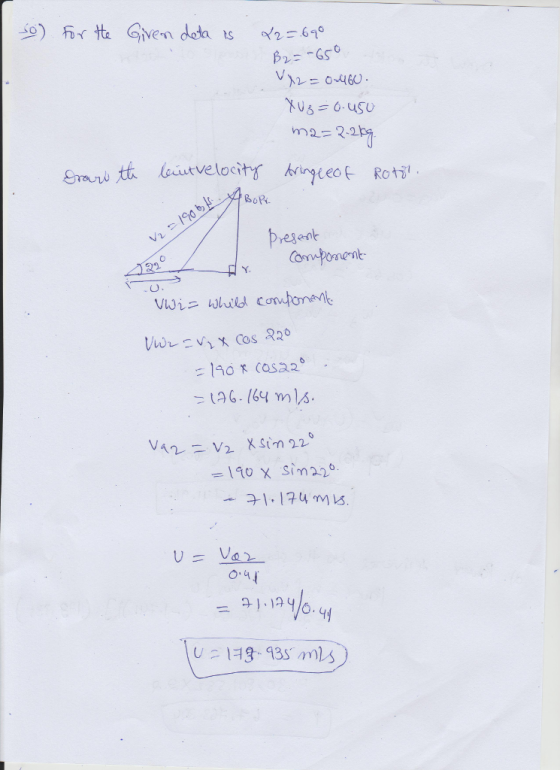 So) For the Given data is α2 = 69°
β2 = -65°
Vx2 = 0.460.
m2 = 2.2kg
Draw the velocity of Rotor.
V2 = 190 m/s
22°
U
r.
Present
component
Vw2 = whild component
Vw2 = V2 × cos 22°
= 190 × cos22°
= 176.164 m/s.
Va2 = V2 × sin22°
= 190 × sin22°
= 71.174 m/s.
U = Va2
0.41
= 71.174/0.41
U = 173.935 m/s